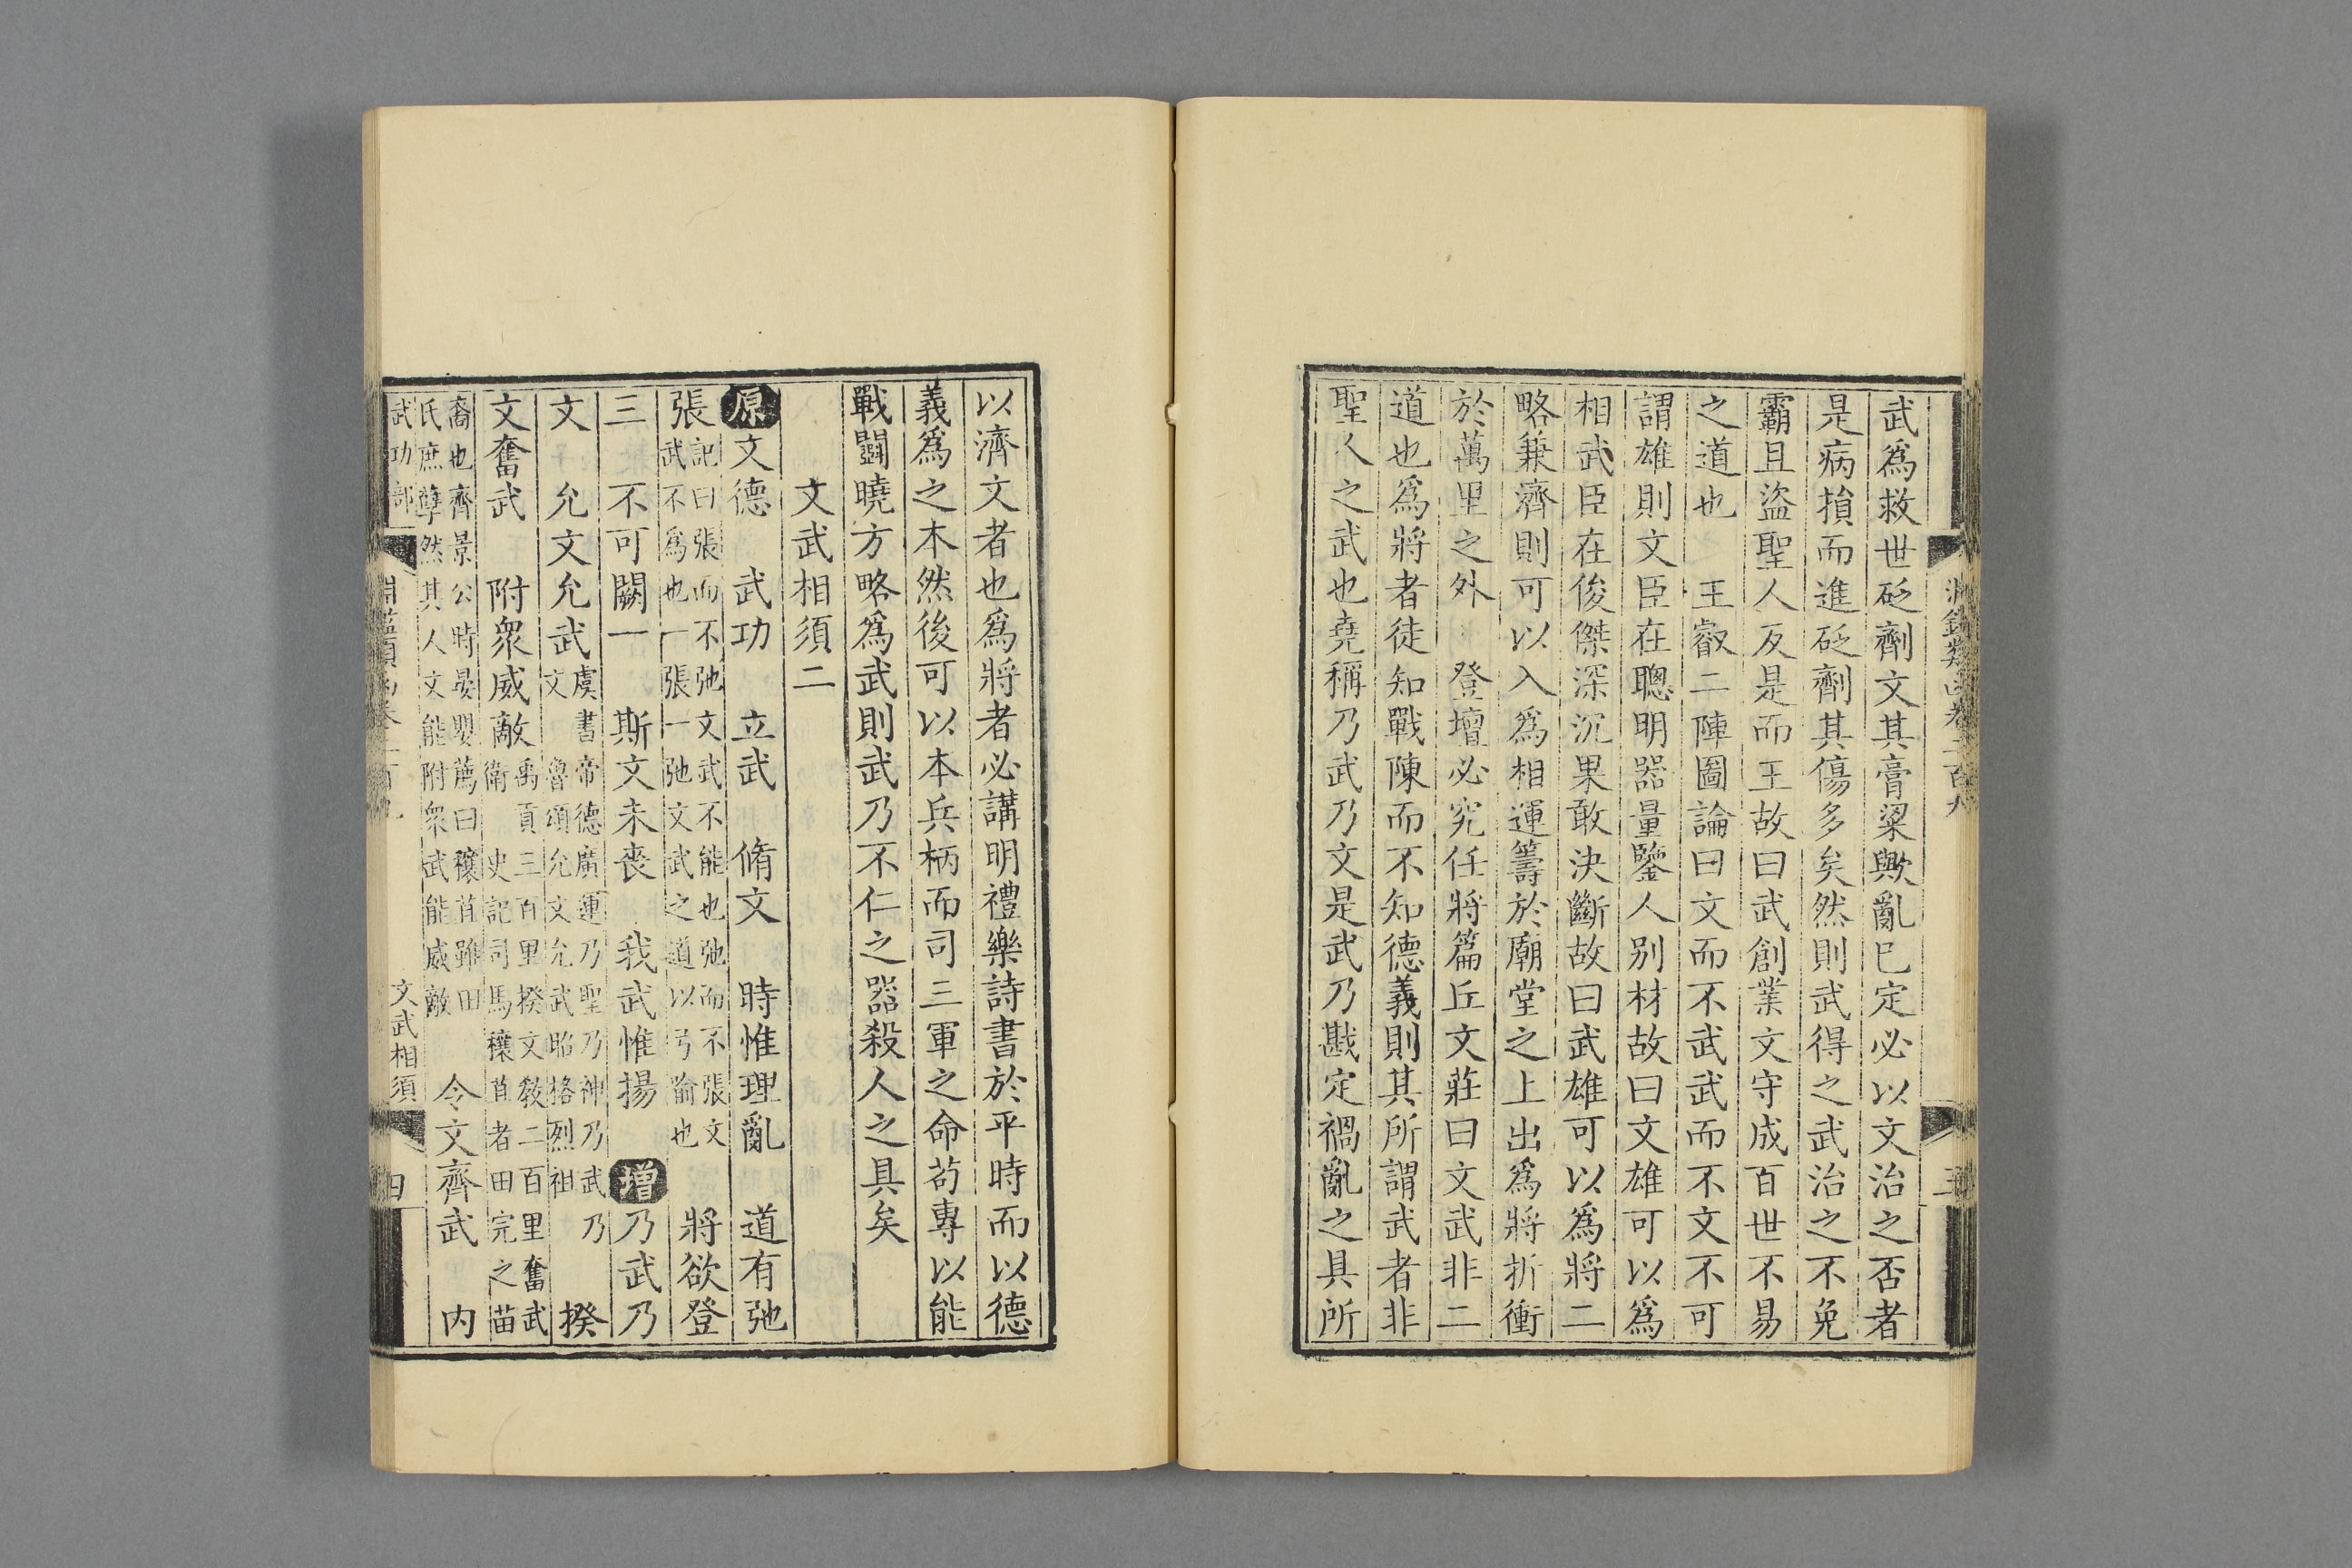 武爲救世砭劑文其膏粱歟亂已定必以文治之否者
是病損而進砭劑其傷多矣然則武得之武治之不免
霸且盜聖人反是而王故曰武創業文守成百世不易
之道也　王叡二陣圖論曰文而不武武而不文不可
謂雄則文臣在聰明器量鑒人別材故曰文雄可以爲
相武臣在俊傑深沉果敢決斷故曰武雄可以爲將二
略兼濟則可以入爲相運籌於廟堂之上出爲將折衝
於萬里之外　登壇必究任將篇丘文莊曰文武非二
道也爲將者徒知戰陳而不知德義則其所謂武者非
聖人之武也堯稱乃武乃文是武乃戡定禍亂之具所
以濟文者也爲將者必講明禮樂詩書於平時而以德
義爲之本然後可以本兵柄而司三軍之命苟專以能
戰鬬曉方略爲武則武乃不仁之器殺人之具矣
文武相須二
原文德　武功　立武　脩文　時惟理亂　道有弛
張記曰張而不弛文武不能也弛而不張文武不爲也一張一弛文武之道以弓喻也　將欲登
三　不可闕一　斯文未喪　我武惟揚　增乃武乃
文　允文允武虞書帝德廣運乃聖乃神乃武乃文　魯頌允文允武昭格烈祖　揆
文奮武　附衆威敵禹貢三百里揆文教二百里奮武衛　史記司馬穰苴者田完之苗
裔也齊景公時晏嬰薦曰穰苴雖田氏庶孽然其人文能附衆武能威敵　令文齊武　內
武功部
文武相須
四